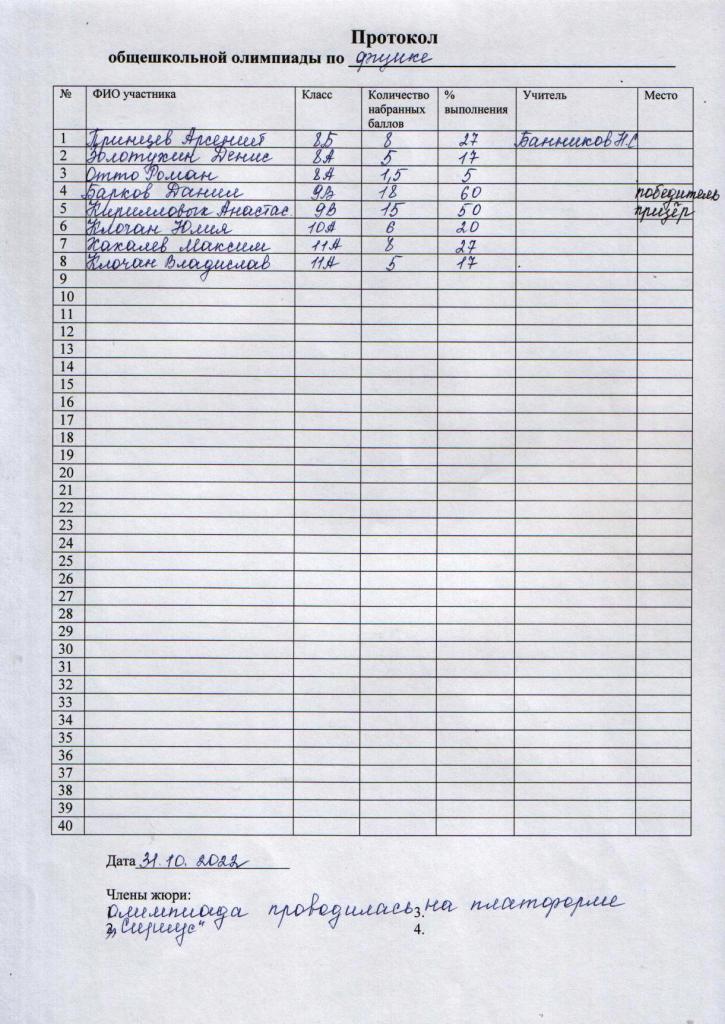 Протокол
общешкольной олимпиады по физике
№ ФИО участника Класс Количество набранных баллов % выполнения Учитель Место
1 Принцев Арсений 8Б 8 27 Банников Н.С
2 Золотухин Денис 8А 5 17
3 Отто Роман 8А 1,5 5
4 Барков Данил 9В 18 60 победитель
5 Кирилловых Анастас. 9В 15 50 призёр
6 Клочан Юлия 10А 6 20
7 Хахалев Максим 11А 8 27
8 Клочан Владислав 11А 5 17
9
10
11
12
13
14
15
16
17
18
19
20
21
22
23
24
25
26
27
28
29
30
31
32
33
34
35
36
37
38
39
40
Дата 31.10.2022
Члены жюри:
1. олимпиада проводилась 3. на платформе
2. „Сириус“ 4.